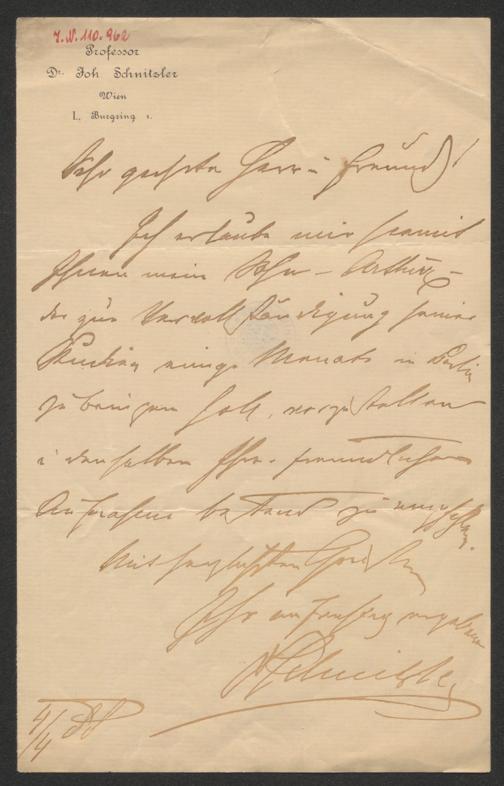 J.N. 110.962
Professor
Dr. Joh Schnitzler
Wien
I., Burgring 1.
Sehr geehrter Herr u Freund!
Ich erlaube mir hiemit
Ihnen mein Sohn – Arthur –
der zur Vervollständigung seiner
Studien einige Monate in Berlin
zubringen soll, vorzustellen
u denselben Ihrer freundlichen
Aufnahme bestens zu empfehlen.
Mit herzlichsten Grüßen
Ihr aufrichtig ergebener
JSchnitzler
4/4 88